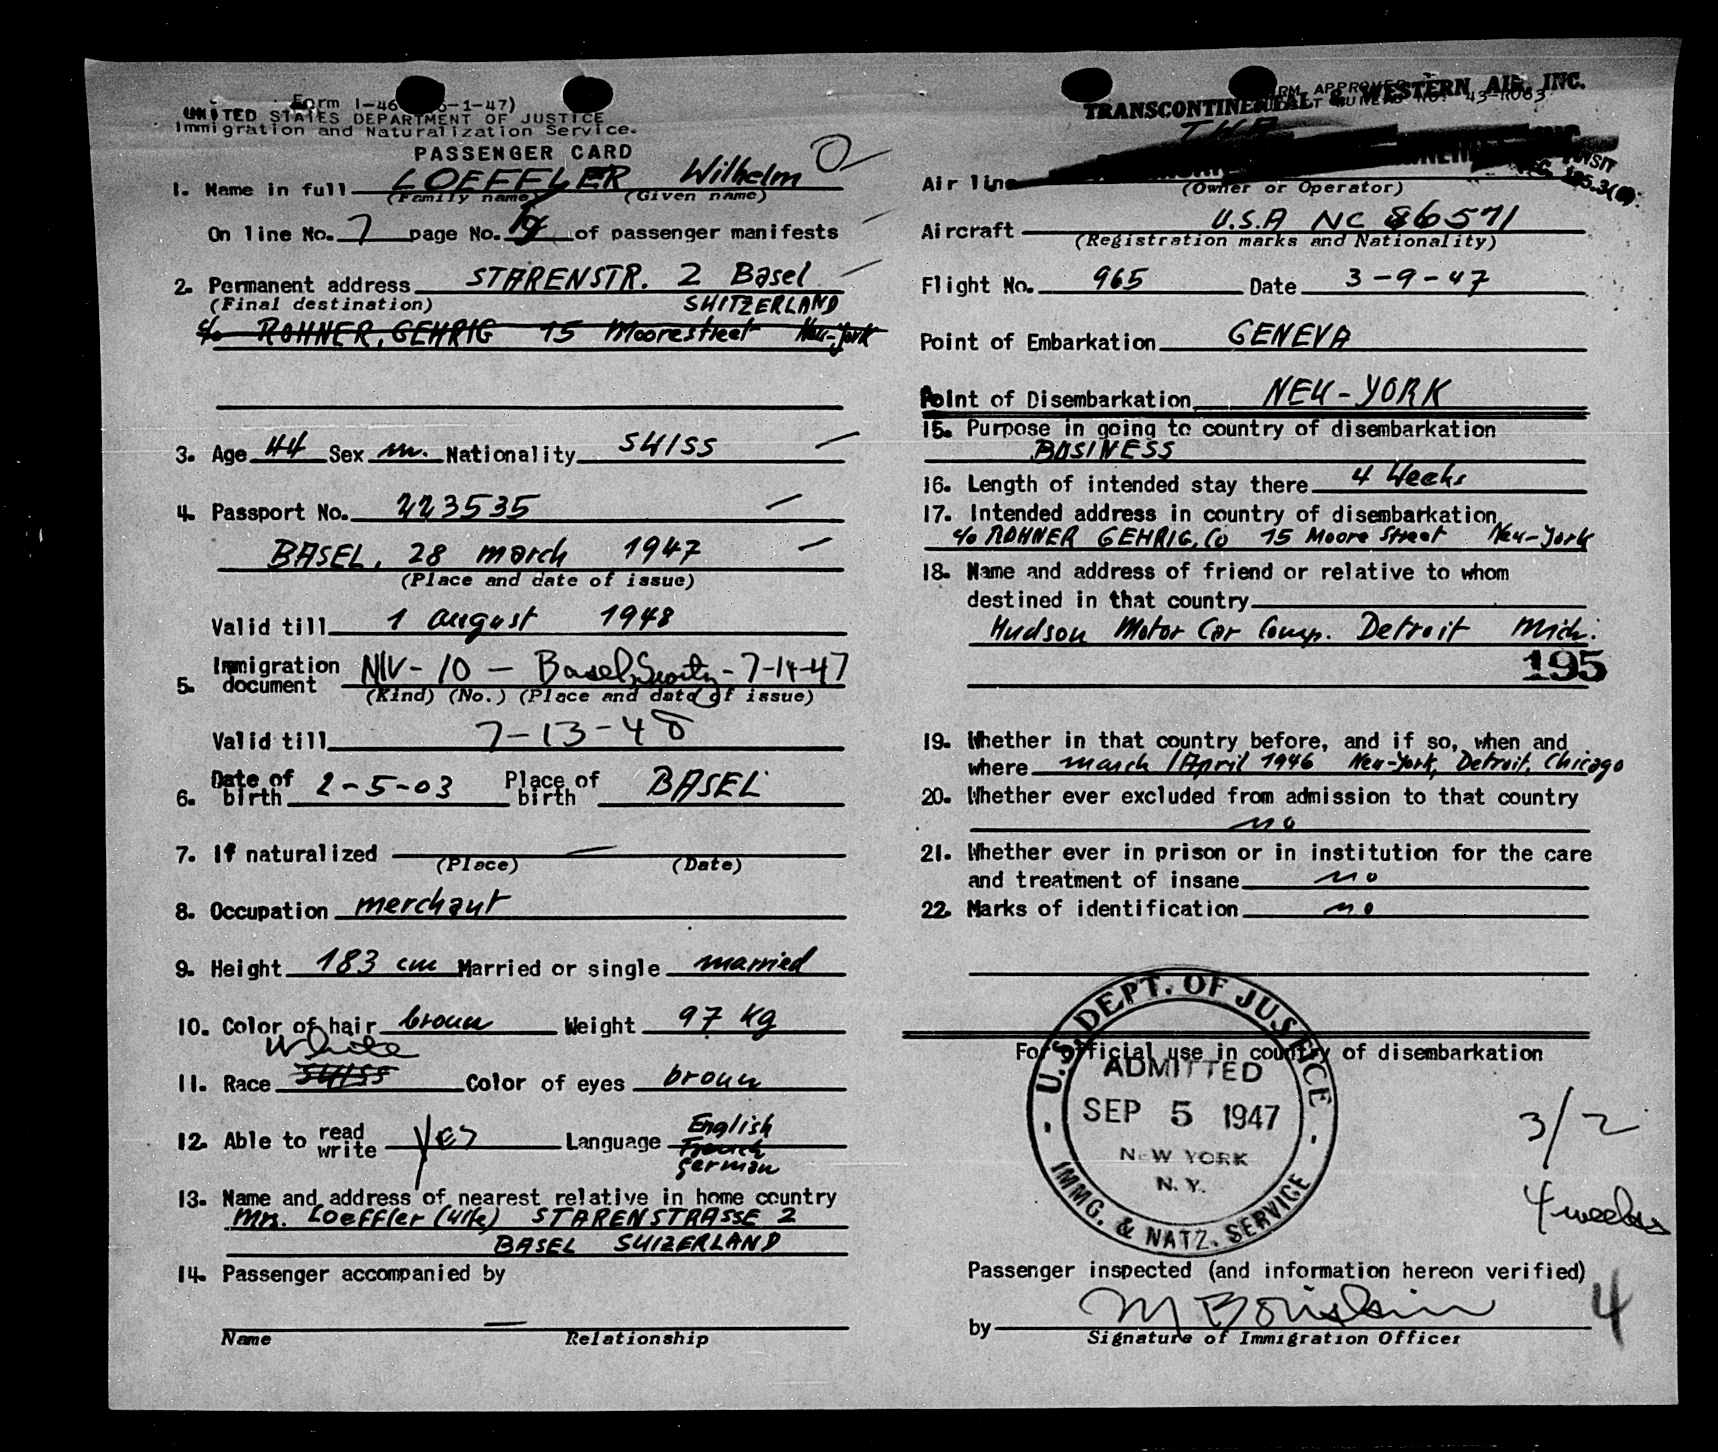 Form I-46
-1-47)
UNITED STATES DEPARTMENT OF JUSTICE
Immigration and Naturalization Service.
PASSENGER CARD
1. Name in full LOEFFLER Wilhelm
(Family name) (Given name)
On line No. 7 page No. of passenger manifests
2. Permanent address STARENSTR. 2 Basel
(Final destination) SWITZERLAND
c/o ROHNER, GEHRIG 15 Moorestreet New-York
3. Age 44 Sex m. Nationality SWISS
4. Passport No. 223535
BASEL, 28 march 1947
(Place and date of issue)
Valid till 1 august 1948
5. Immigration document NIV-10 - Basel, Switz - 7-14-47
(Kind) (No.) (Place and date of issue)
Valid till 7-13-48
6. Date of birth 2-5-03 Place of birth BASEL
7. If naturalized —
(Place) (Date)
8. Occupation merchant
9. Height 183 cm Married or single married
10. Color of hair broun Weight 97 kg
White
11. Race SWISS Color of eyes broun
12. Able to read write Yes Language English
French
german
13. Name and address of nearest relative in home country
Mrs. Loeffler (wife) STARENSTRASSE 2
BASEL SWIZERLAND
14. Passenger accompanied by
—
Name Relationship
FORM APPROVED
TRANSCONTINENTAL & WESTERN AIR, INC.
43-R063
TWA
Air line
(Owner or Operator)
Aircraft U.S.A NC 86571
(Registration marks and Nationality)
Flight No. 965 Date 3-9-47
Point of Embarkation GENEVA
Point of Disembarkation NEW-YORK
15. Purpose in going to country of disembarkation
BUSINESS
16. Length of intended stay there 4 Weeks
17. Intended address in country of disembarkation
c/o ROHNER GEHRIG, Co 15 Moore Street New-York
18. Name and address of friend or relative to whom
destined in that country
Hudson Motor Car Comp. Detroit Mich.
195
19. Whether in that country before, and if so, when and
where march / April 1946 New-York, Detroit, Chicago
20. Whether ever excluded from admission to that country
no
21. Whether ever in prison or in institution for the care
and treatment of insane no
22. Marks of identification no
For official use in country of disembarkation
U.S. DEPT. OF JUSTICE
ADMITTED
SEP 5 1947
NEW YORK
N.Y.
IMMG. & NATZ. SERVICE
3/2
4 weeks
Passenger inspected (and information hereon verified)
4
by
Signature of Immigration Officer